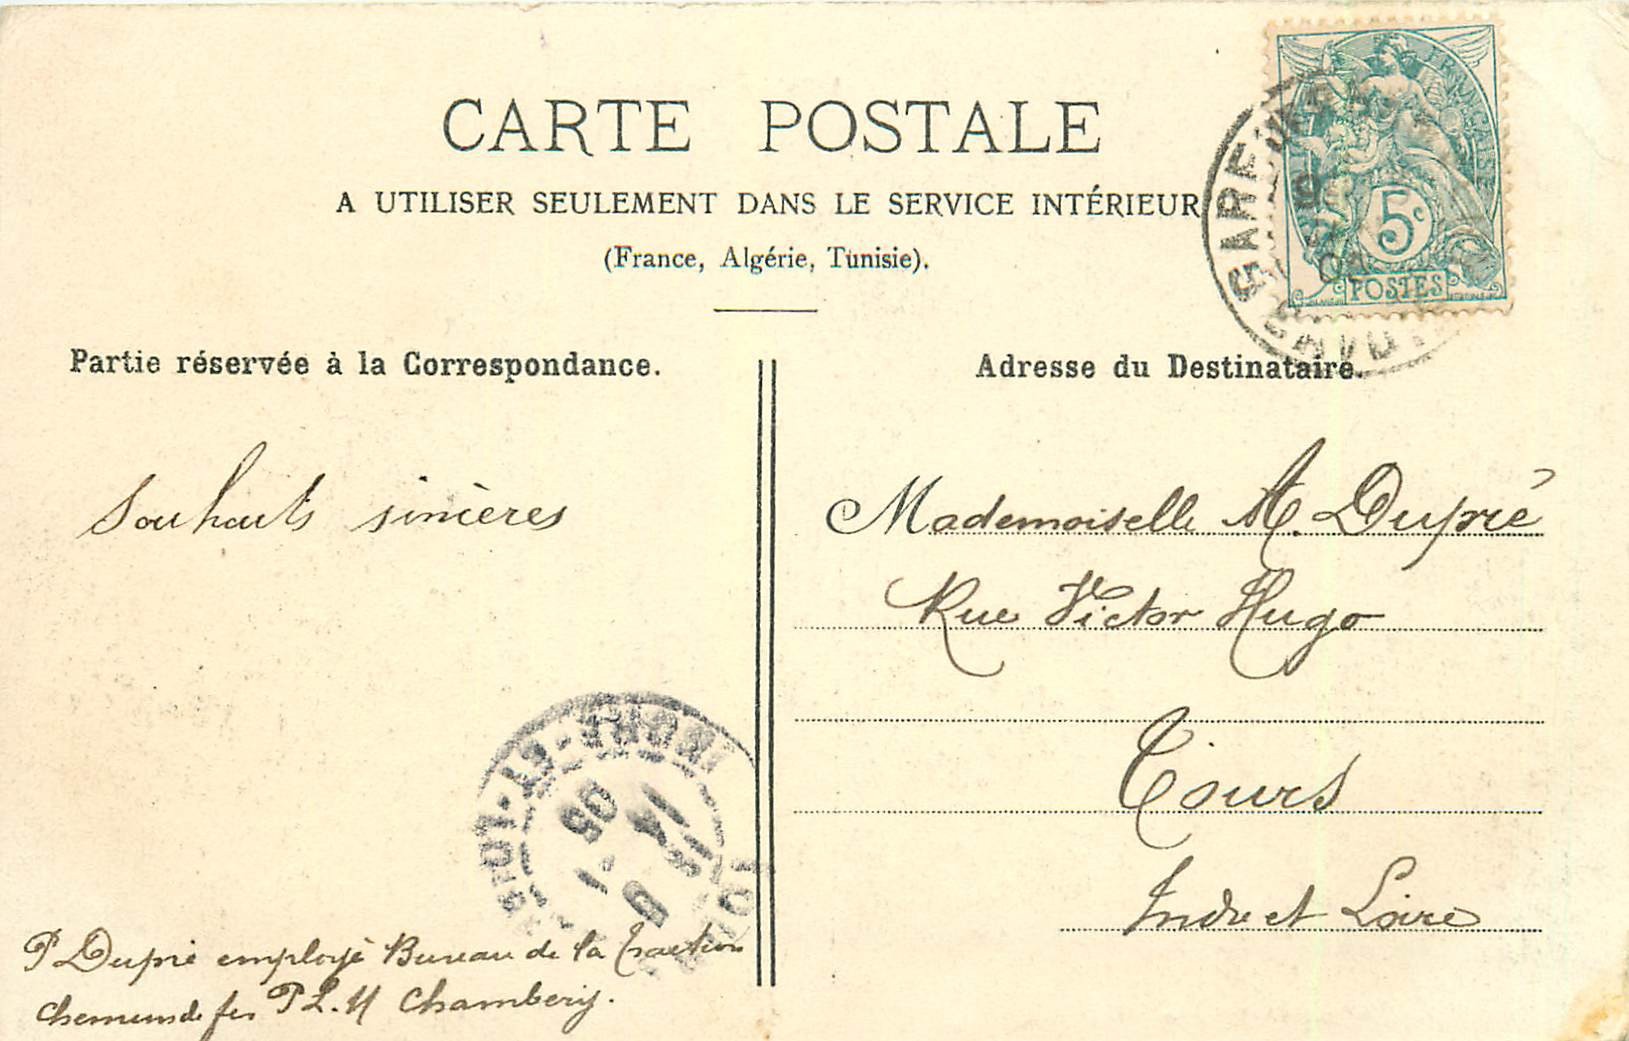 CARTE POSTALE
A UTILISER SEULEMENT DANS LE SERVICE INTÉRIEUR
(France, Algérie, Tunisie).
5c
POSTES
GARE
Partie réservée à la Correspondance.
Souhaits sincères
P Dupré employé Bureau de la traction
Chemins de fer P L. M Chambery.
Adresse du Destinataire.
Mademoiselle A. Dupré
Rue Victor Hugo
Tours
Indre et Loire
INDRE-ET-LOIRE
05